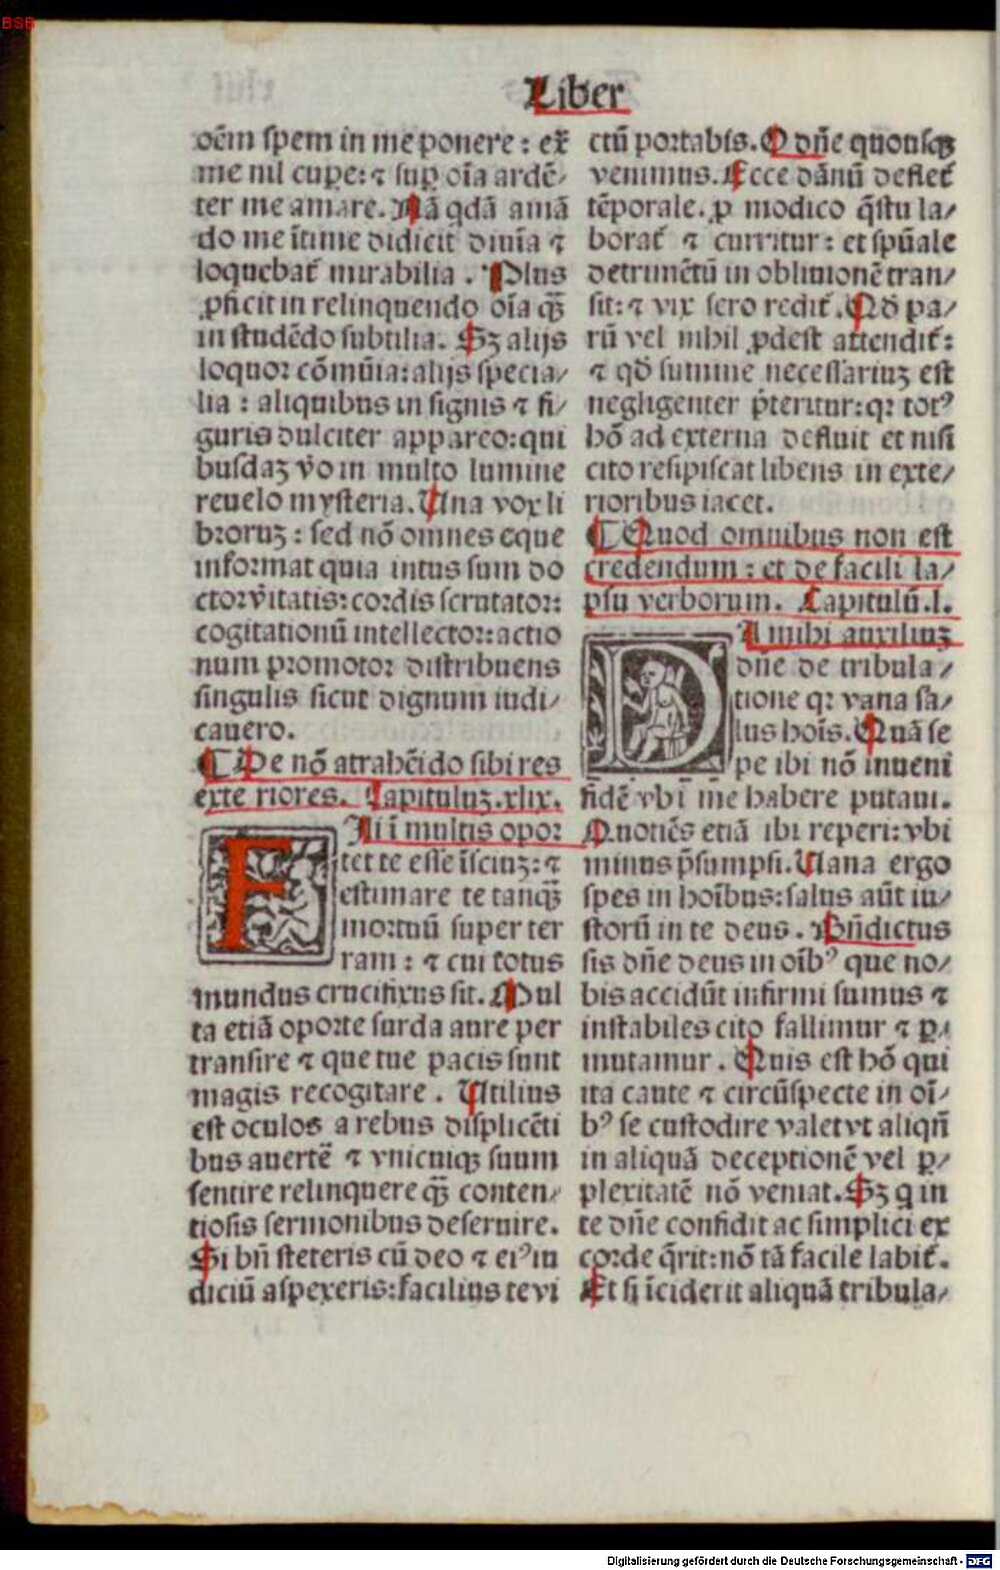 BSB
Liber
oēm spem in me ponere: ex̄
me nil cupe: ⁊ sup oīa ardē⸗
ter me amare. Nā qdā amā
do me ītime didicit diuīa ⁊
loquebat̄ mirabilia. Plus
ꝓficit in relinquendo oīa qȝ̄
in studēdo subtilia. Sȝ alijs
loquor cōmūia: alijs specia⸗
lia: aliquibus in signis ⁊ fi⸗
guris dulciter appareo: qui
busdaȝ v̄o in multo lumine
reuelo mysteria. Una vox li
broruȝ: sed nō omnes eque
informat quia intus sum do
ctor v̄itatis: cordis scrutator:
cogitationū intellector: actio
num promotor distribuens
singulis sicut dignum iudi⸗
cauero.
¶ De nō atrahēdo sibi res
exteriores. Capituluȝ. xlix.
Fili ī multis opor
tet te esse īsciuȝ: ⁊
estimare te tanqȝ̄
mortuū super ter
ram: ⁊ cui totus
mundus crucifixus sit. Mul
ta etiā oporte surda aure per
transire ⁊ que tue pacis sunt
magis recogitare. Utilius
est oculos a rebus displicēti
bus auertē ⁊ vnicuiqȝ suum
sentire relinquere qȝ̄ conten⸗
tiosis sermonibus deseruire.
Si bn̄ steteris cū deo ⁊ eiꝰ iu
diciū aspexeris: facilius te vi
ctū portabis. O dn̄e quousqȝ
venimus. Ecce dānū deflet̄
tēporale. ꝓ modico q̄stu la⸗
borat̄ ⁊ curritur: et spūale
detrimētū in obliuionē tran⸗
sit: ⁊ vix sero redit̄. Qd̄ pa⸗
rū vel nihil ꝓdest attendit̄:
⁊ qd̄ summe necessariuȝ est
negligenter p̄teritur: qꝛ totꝰ
hō ad externa defluit et nisi
cito resipiscat libens in exte⸗
rioribus iacet.
¶ Quod omnibus non est
credendum: et de facili la⸗
psu verborum. Capitulū. l.
DA mihi auxiliuȝ
dn̄e de tribula⸗
tione qꝛ vana sa⸗
lus hoīs. Quā se
pe ibi nō inueni
fidē vbi me habere putaui.
Quotiēs etiā ibi reperi: vbi
minus p̄sumpsi. Uana ergo
spes in hoībus: salus aūt iu⸗
storū in te deus. Bn̄dictus
sis dn̄e deus in oībꝰ que no⸗
bis accidūt infirmi sumus ⁊
instabiles cito fallimur ⁊ ꝑ⸗
mutamur. Quis est hō qui
ita caute ⁊ circūspecte in oī⸗
bꝰ se custodire valet vt aliqn̄
in aliquā deceptionē vel ꝑ⸗
plexitatē nō veniat. Sȝ q in
te dn̄e confidit ac simplici ex
corde q̄rit: nō tā facile labit̄.
Et si īciderit aliquā tribula⸗
Digitalisierung gefördert durch die Deutsche Forschungsgemeinschaft - DFG